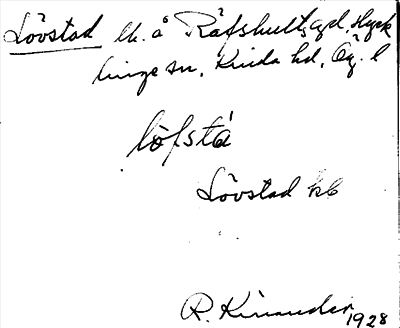 Lövstad lh. å Räfshults egd. Hyck
linge sn, Kinda hd, Ög. l
löfstá
Lövstad kb
R. Kinander
1928